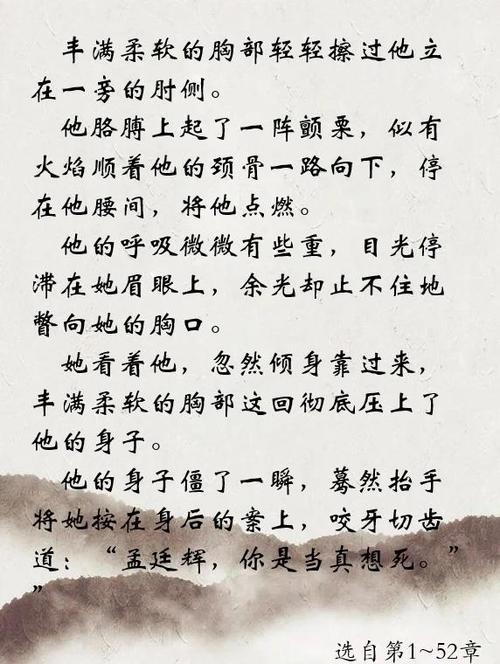 丰满柔软的胸部轻轻擦过他立
在一旁的肘侧。
他胳膊上起了一阵颤栗，似有
火焰顺着他的颈骨一路向下，停
在他腰间，将他点燃。
他的呼吸微微有些重，目光停
滞在她眉眼上，余光却止不住地
瞥向她的胸口。
她看着他，忽然倾身靠过来，
丰满柔软的胸部这回彻底压上了
他的身子。
他的身子僵了一瞬，蓦然抬手
将她按在身后的案上，咬牙切齿
道：“孟廷辉，你是当真想死。”
”
选自第1~52章